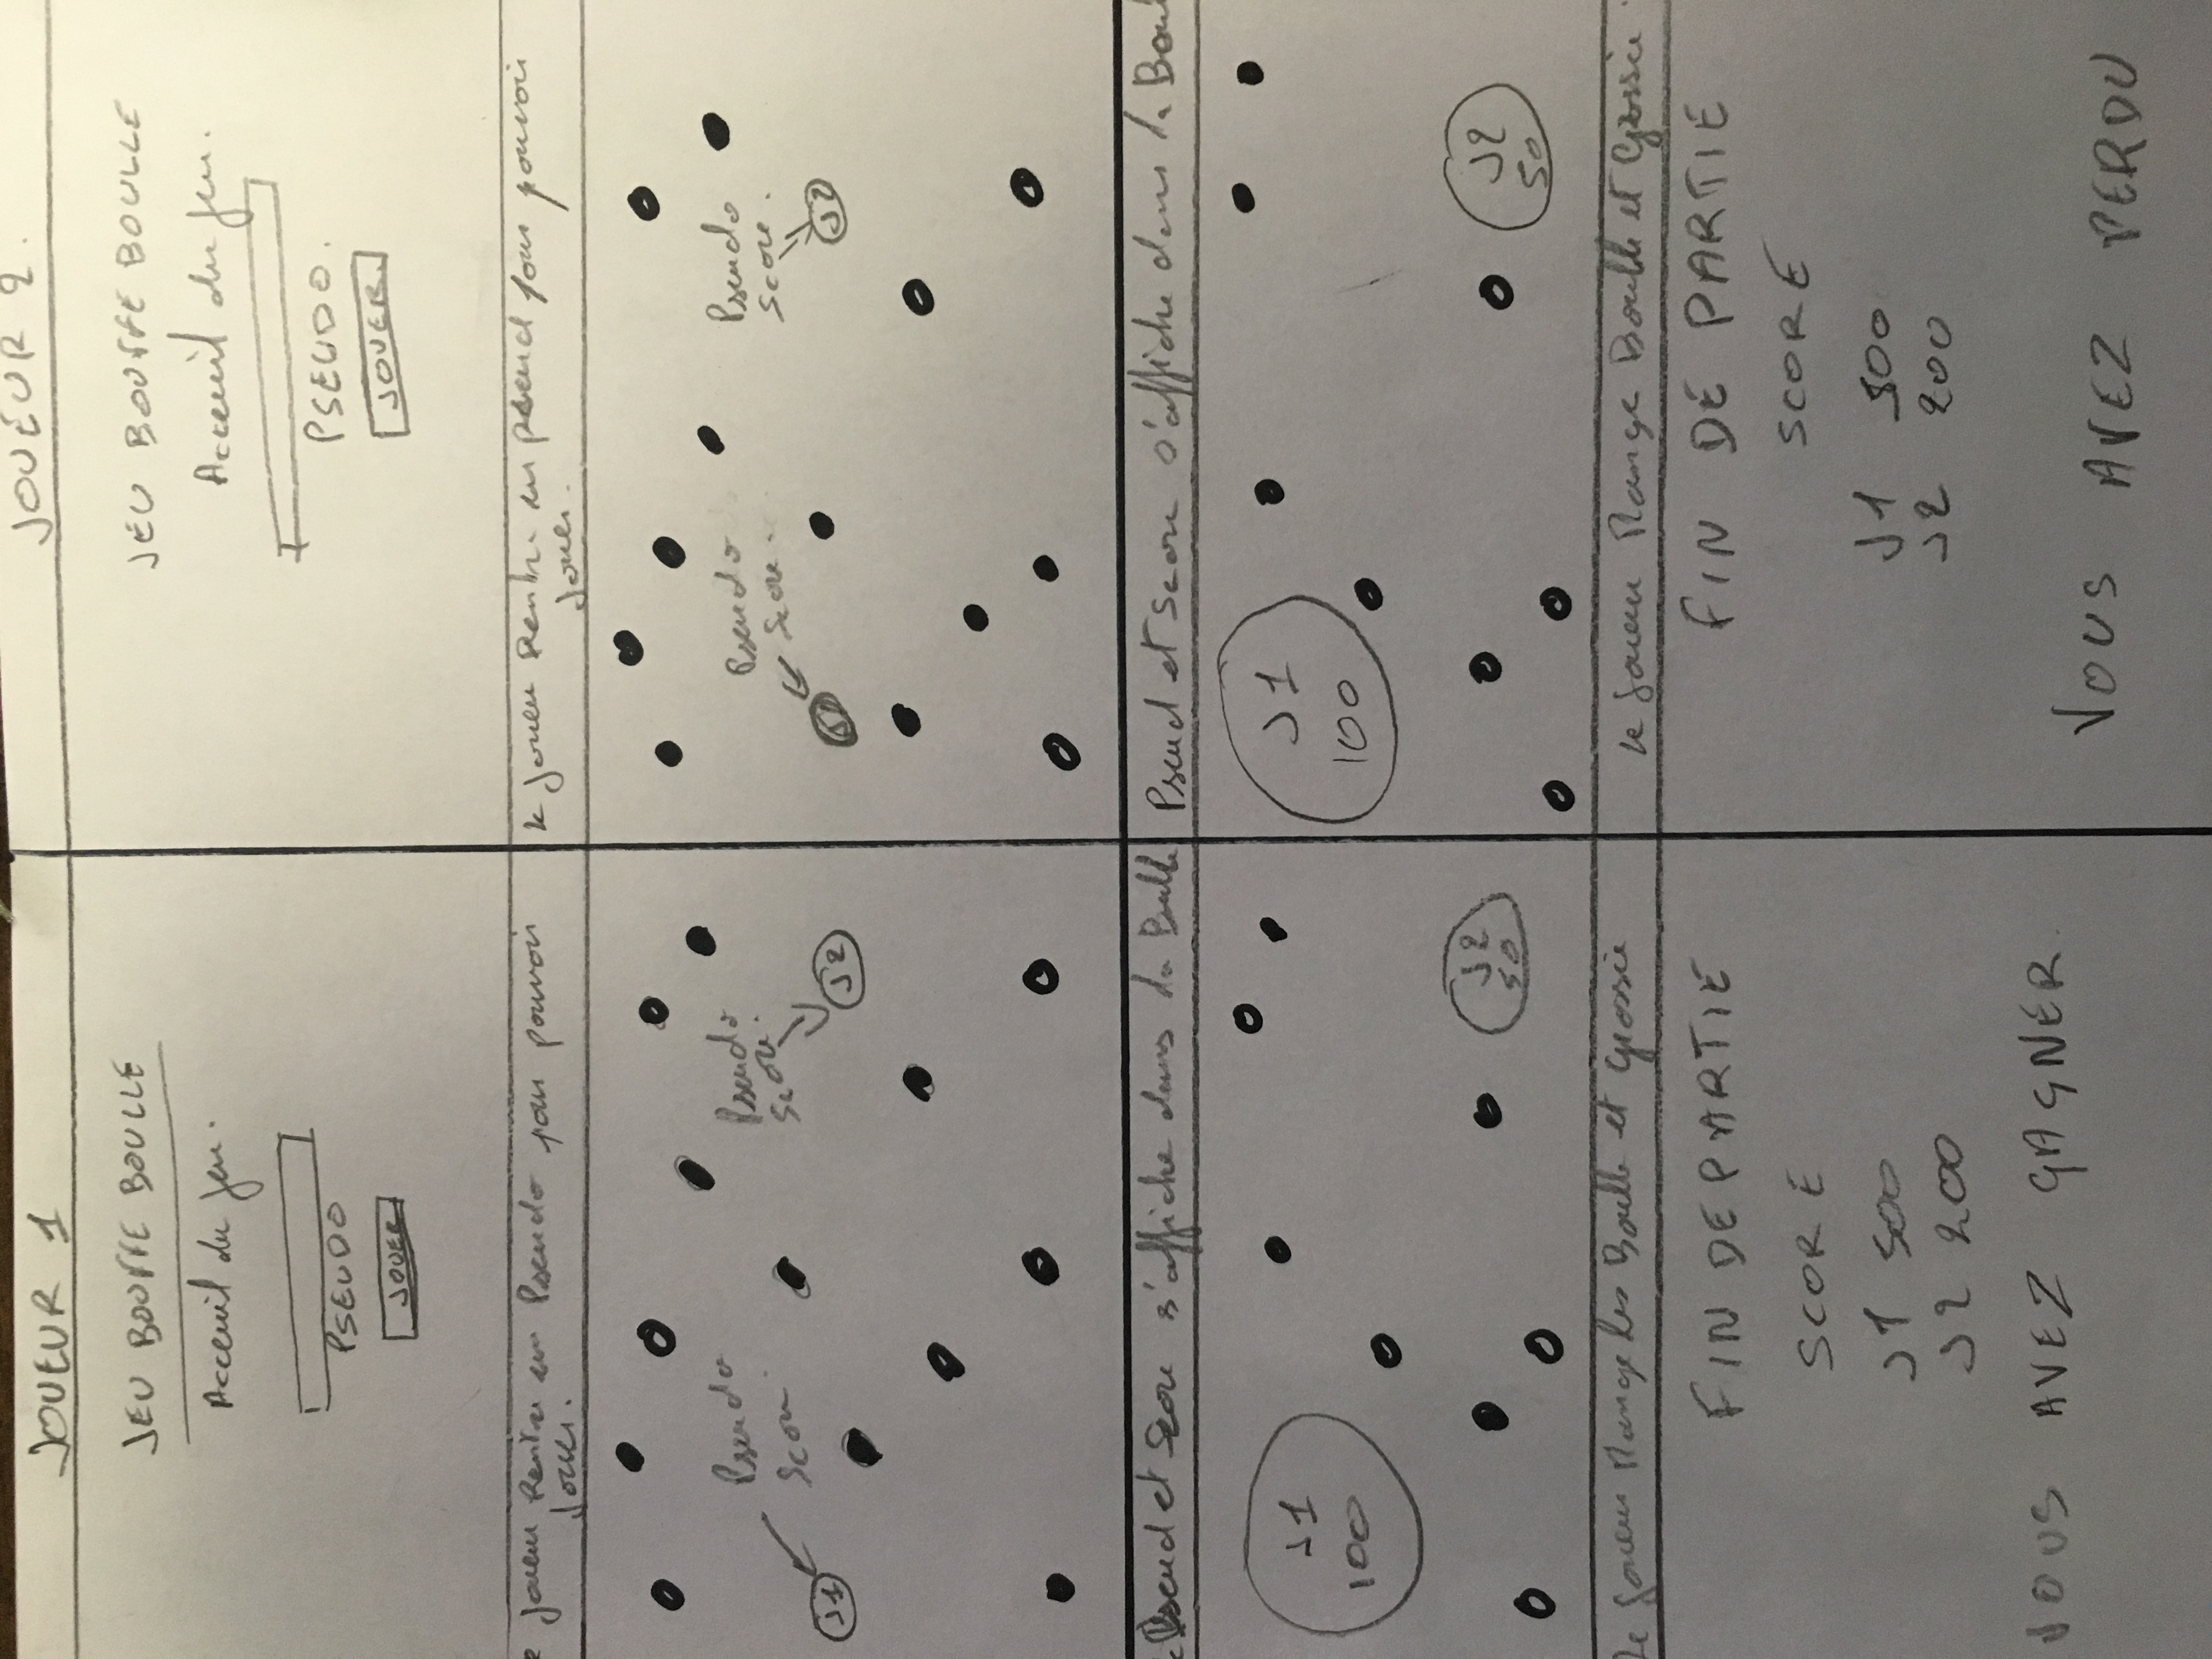 JOUEUR 1
JEU BOUFFE BOULLE
Acceuil du jeu.
PSEUDO
JOUER
Joueur Rentre un Pseudo pour pouvoir
Jouer.
Pseudo
Score
Pseudo
Score.
J1
J2
Pseud et Score s'affiche dans la Boulle
J1
100
J2
50
Le Joueur Mange les Boulle et Grossie
FIN DE PARTIE
SCORE
J1 500
J2 200
VOUS AVEZ GAGNER
JOUEUR 2.
JEU BOUFFE BOULLE
Acceuil du Jeu.
PSEUDO.
JOUER.
le Joueur Rentre un pseud pour pouvoir
Jouer.
Pseudo
Score.
Pseudo
Score.
J1
J2
Pseud et Score s'affiche dans la Boul
J1
100
J2
50
le Joueur Mange Boulle et Grossie
FIN DE PARTIE
SCORE
J1 500
J2 200
VOUS AVEZ PERDU